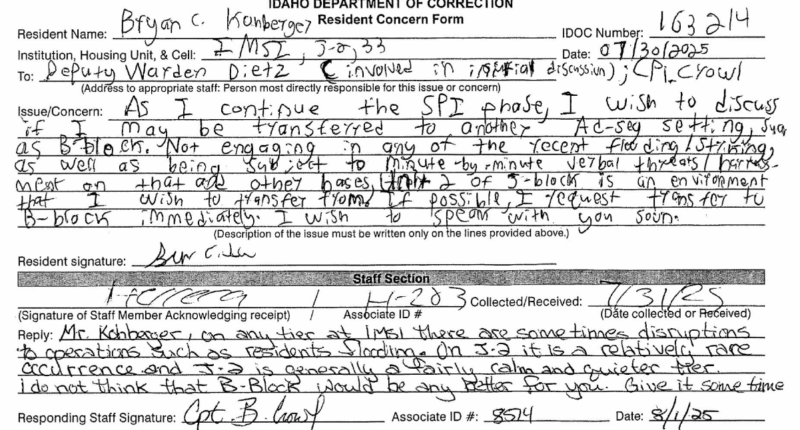 IDAHO DEPARTMENT OF CORRECTION
Resident Concern Form
Resident Name: Bryan C. Kohberger IDOC Number: 163214
Institution, Housing Unit, & Cell: IMSI, J-2, 33 Date: 07/30/2025
To: Deputy Warden Dietz (involved in initial discussion); CPt. Crowl
(Address to appropriate staff: Person most directly responsible for this issue or concern)
Issue/Concern: As I continue the SPI phase, I wish to discuss
if I may be transferred to another Ad-seg setting, such
as B-block. Not engaging in any of the recent flooding/striking,
as well as being subject to minute-by-minute verbal threats/harass-
ment on that and other bases, 2 of J-block is an environment
that I wish to transfer from. If possible, I request transfer to
B-block immediately. I wish to speak with you soon.
(Description of the issue must be written only on the lines provided above.)
Resident signature:
Staff Section
Herrera / H-203 Collected/Received: 7/31/25
(Signature of Staff Member Acknowledging receipt) / Associate ID # (Date collected or Received)
Reply: Mr. Kohberger, on any tier at IMSI there are sometimes disruptions
to operations such as residents flooding. On J-2 it is a relatively rare
occurrence and J-2 is generally a fairly calm and quieter tier.
I do not think that B-Block would be any better for you. Give it some time
Responding Staff Signature: Cpt. B. Crowl Associate ID #: 8514 Date: 8/1/25